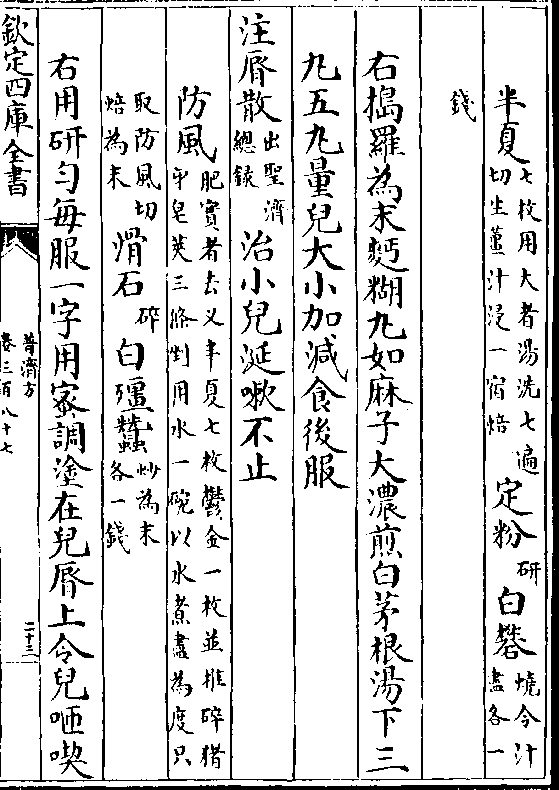 半夏七枚用大者湯洗七遍切生薑汁浸一宿焙定粉研白礬燒令汁盡各一
錢
右搗羅為末麫糊丸如麻子大濃煎白茅根湯下三
丸五丸量兒大小加減食後服
注脣散出聖濟總錄治小兒涎嗽不止
防風肥實者去乂半夏七枚鬱金一枚並搥碎猪牙皂莢三條剉用水一碗以水煮盡為度只
取防風切焙為末滑石碎白殭蠶炒為末各一錢
右用研勻每服一字用蜜調塗在兒脣上令兒咂喫
欽定四庫全書
普濟方
卷三百八十七
二十三